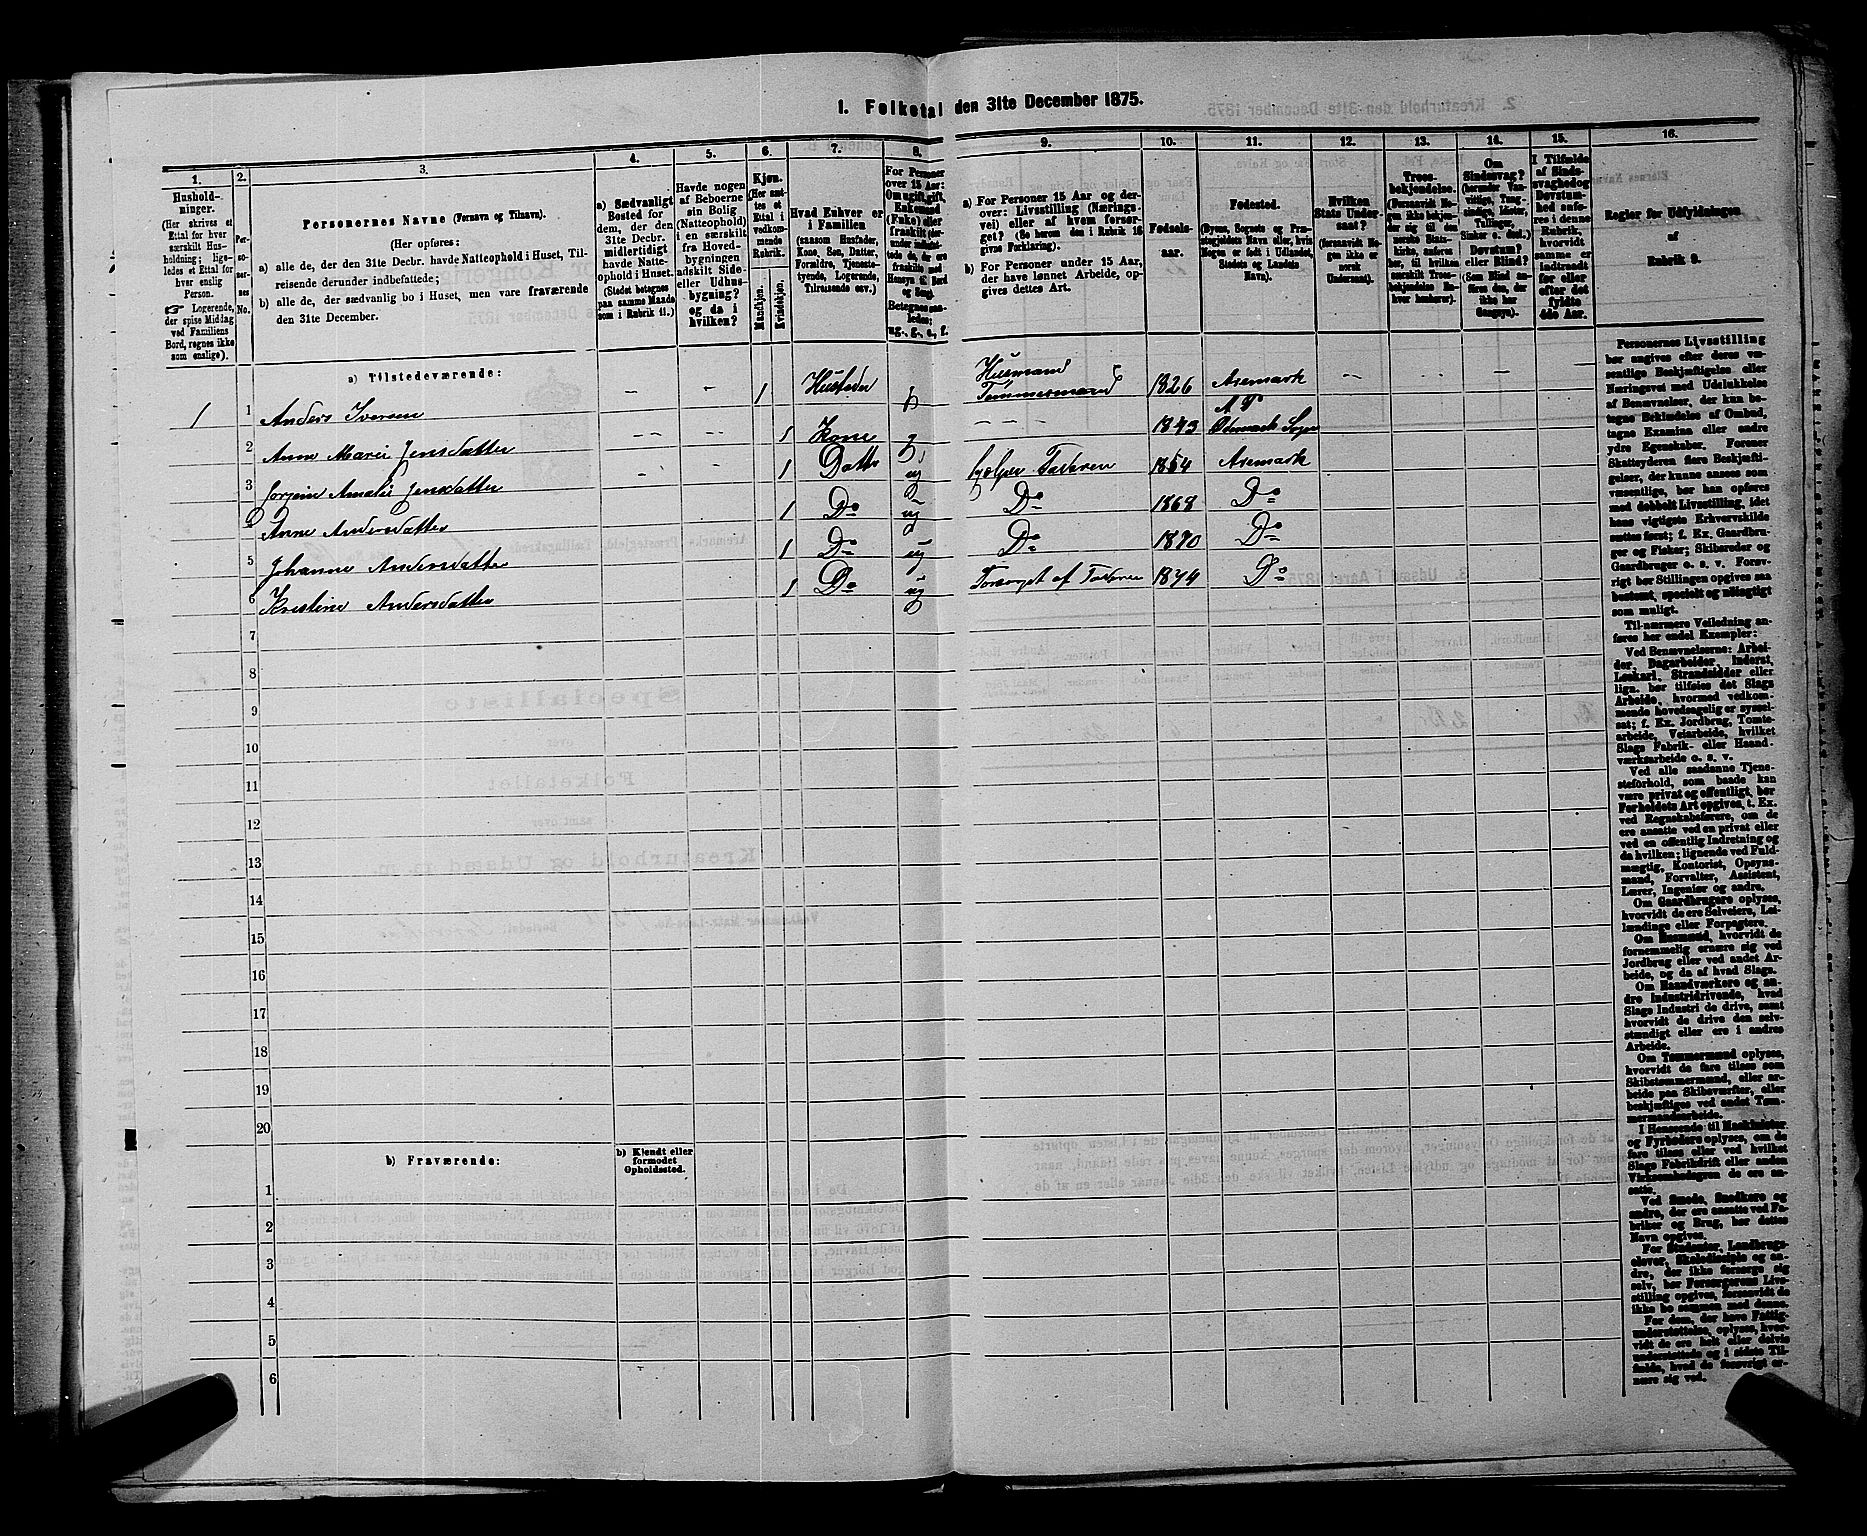 1. Folketal den 31te December 1875.
1.
2.
3.
4.
5.
6.
7.
8.
9.
10.
11.
12.
13.
14.
15.
16.
Hushold-
ninger.
(Her skrives et
Ettal for hver
særskilt Hus-
holdning; lige-
ledes et Ettal for
hver enslig
Person.
Logerende,
der spise Middag
ved Familiens
Bord, regnes ikke
som enslige).
Per-
so-
ner-
nes
No.
Personernes Navne (Fornavn og Tilnavn).
(Her opføres:
a) alle de, der den 31te Decbr. havde Natteophold i Huset, Til-
reisende derunder indbefattede;
b) alle de, der sædvanlig bo i Huset, men vare fraværende
den 31te December.
a) Sædvanligt
Bosted for
dem, der den
31te Decbr.
midlertidigt
havde Natte-
ophold i Huset.
(Stedet betegnes
paa samme Maade
som i Rubrik 11.)
Havde nogen
af Beboerne
sin Bolig
(Natteophold)
i en særskilt
fra Hoved-
bygningen
adskilt Side-
eller Udhus-
bygning?
og da i
hvilken?
Kjøn.
(Her sæt-
tes et
Ettal i
vedkom-
mende
Rubrik.
Mandkjøn.
Kvindekjøn.
Hvad Enhver er
i Familien
(saasom Husfader,
Kone, Søn, Datter,
Forældre, Tjeneste-
tyende, Logerende,
Tilreisende osv.)
For Personer
over 15 Aar:
Om ugift, gift,
Enkemand
(Enke) eller
fraskilt
Betegnes saa-
ledes:
ug., g., e., f.
a) For Personer 15 Aar og der-
over: Livsstilling (Nærings-
vei) eller af hvem forsør-
get? (Se herom den i Rubrik 16
givne Forklaring).
b) For Personer under 15 Aar,
der have lønnet Arbeide, op-
gives dettes Art.
Fødsels-
aar.
Fødested.
(Byens, Sognets og Præ-
stegjeldets Navn eller, hvis
Nogen er født i Udlandet,
Stedets og Landets
Navn).
Hvilken
Stats Under-
saat?
(forsaavidt No-
gen ikke er
norsk
Undersaat).
Troes-
bekjendelse.
(Forsaavidt No-
gen ikke bekjen-
der sig til den
norske Stats-
kirke, anføres
her, til hvilken
særskilt Troes-
bekjendelse En-
hver henhører).
Om
Sindssvag?
(herunder Van-
vittige, Tung-
sindige, Idioter,
Tullinger,
Sinker o. desl.)
Døvstum?
eller Blind?
(Som Blind an-
føres den, der
ikke har
Gangsyn).
I Tilfælde
af Sinds-
svaghed og
Døvstum-
hed anfø-
res i denne
Rubrik,
hvorvidt
samme er
indtraadt
før eller
efter det
fyldte
4de Aar.
Regler for Udfyldningen
af
Rubrik 9.
a) Tilstedeværende:
1 1 Anders Iversen — — 1 Husfader g Husmand Tømmermand 1826 Aremark — — — —
2 Anne Marie Jensdatter — — 1 Kone g — — — 1843 A P Sogn
3 Jorgine Amalie Jensdatter — — 1 Datter ug hjælper Faderen 1864 Aremark
4 Anne Andersdatter 1 Do ug Do 1868 Do
5 Johanne Andersdatter 1 Do ug Do 1870 Do
6 Kristine Andersdatter 1 Do ug Forsørget af Faderen 1874 Do
7
8
9
10
11
12
13
14
15
16
17
18
19
20
b) Fraværende:
b) Kjendt eller
formodet
Opholdssted.
1
2
3
4
5
6
Personernes Livsstilling
bør angives efter deres væ-
sentlige Beskjæftigelse eller
Næringsvei med Udelukkelse
af Benævnelser, der kun be-
tegne Beklædelse af Ombud,
tagne Examina eller andre
ydre Egenskaber. Forener
Skatteyderen flere Beskjæfti-
gelser, der kunne ansees som
væsentlige, bør han opføres
med dobbelt Livsstilling, idet
hans vigtigste Erhvervskilde
sættes først; f. Ex. Gaardbru-
ger og Fisker; Skibsreder og
Gaardbruger o. s. v. Forøv-
rigt bør Stillingen opgives saa
bestemt, specielt og nøiagtigt
som muligt.
Til nærmere Veiledning an-
føres her endel Exempler:
Ved Benævnelserne: Arbei-
der, Dagarbeider, Inderst,
Løskarl, Strandsidder eller
lign. bør tilføies det Slags
Arbeide, hvormed vedkom-
mende hovedsagelig er syssel-
sat; f. Ex. Jordbrug, Tomte-
arbeide, Veiarbeide, hvilket
Slags Fabrik- eller Haand-
værksarbeide o. s. v.
Ved alle saadanne Tjene-
steforhold, som baade kan
være privat og offentligt, bør
Forholdets Art opgives, t. Ex.
ved Regnskabsførere, om de
ere ansatte ved en privat eller
ved en offentlig Indretning og
da hvilken; lignende ved Fuld-
mægtig, Kontorist, Opsyns-
mand, Forvalter, Assistent,
Lærer, Ingeniør og andre.
Om Gaardbrugere oplyses,
hvorvidt de ere Selveiere, Lei-
lændinge eller Forpagtere.
Om Husmænd, hvorvidt de
fornemmelig ernære sig ved
Jordbrug eller ved andet Ar-
beide, og da af hvad Slags.
Om Haandværkere og an-
dre Industridrivende, hvad
Slags Industri de drive, samt
hvorvidt de drive den selv-
stændigt eller ere i andres
Arbeide.
Om Tømmermænd oplyses,
hvorvidt de fare tilsøs som
Skibstømmermænd, eller ar-
beide paa Skibsværfter, eller
beskjæftiges ved andet Tøm-
mermandsarbeide.
I Henseende til Maskinister
og Fyrbødere oplyses, om de
fare tilsøs eller ved hvilket
Slags Fabrikdrift eller anden
Virksomhedsgren de ere an-
satte.
Ved Smede, Snedkere og
andre, der ere ansatte ved Fa-
briker og Brug, bør dettes
Navn opgives.
For Studenter, Landbrugs-
elever, Skoledisciple og an-
dre, der ikke forsørge sig
selv, bør Forsørgerens Livs-
stilling opgives, forsaavidt de
ikke bo sammen med denne.
For dem, der have Fattig-
understøttelse, oplyses, hvor-
vidt de ere helt eller delvis
understøttede og i sidste Til-
fælde, hvad de forøvrigt er-
nære sig ved.